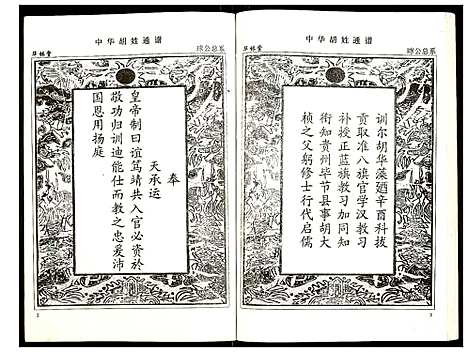 中华胡姓通谱
草根堂
晖公总系
奉
天承运
皇帝制曰谊笃靖共入官必资於
敬功归训迪能仕而教之忠爰沛
国恩用扬庭
2
中华胡姓通谱
晖公总系
训尔胡华藻廼辛酉科拔
贡取准八旗官学汉教习
补授正蓝旗教习加同知
衔知贵州毕节县事胡大
祯之父躬修士行代启儒
3